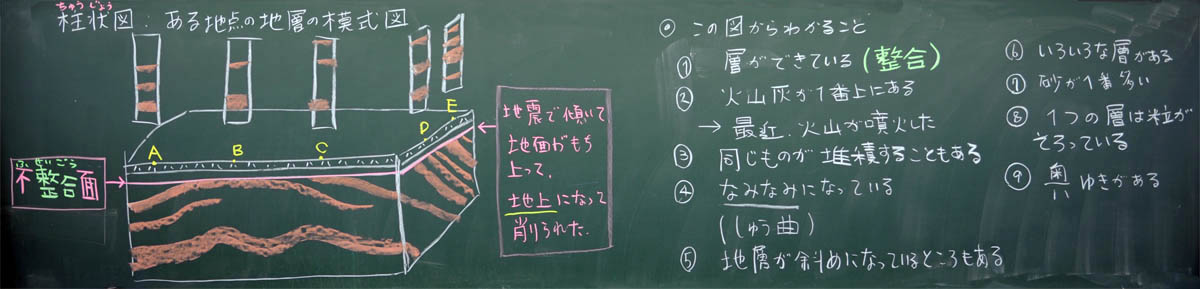 ちゅうじょう
柱状図：ある地点の地層の模式図
A
B
C
D
E
ふせいごう
不整合面
地震で傾いて
地面がもち
上って、
地上になって
削りられた.
◎ この図からわかること
① 層ができている(整合)
② 火山灰が1番上にある
→ 最近、火山が噴火した
③ 同じものが堆積することもある
④ なみなみになっている
(しゅう曲)
⑤ 地層が斜めになっているところもある
⑥ いろいろな層がある
⑦ 砂が1番多い
⑧ 1つの層は粒が
そろっている
⑨ ゆきがある